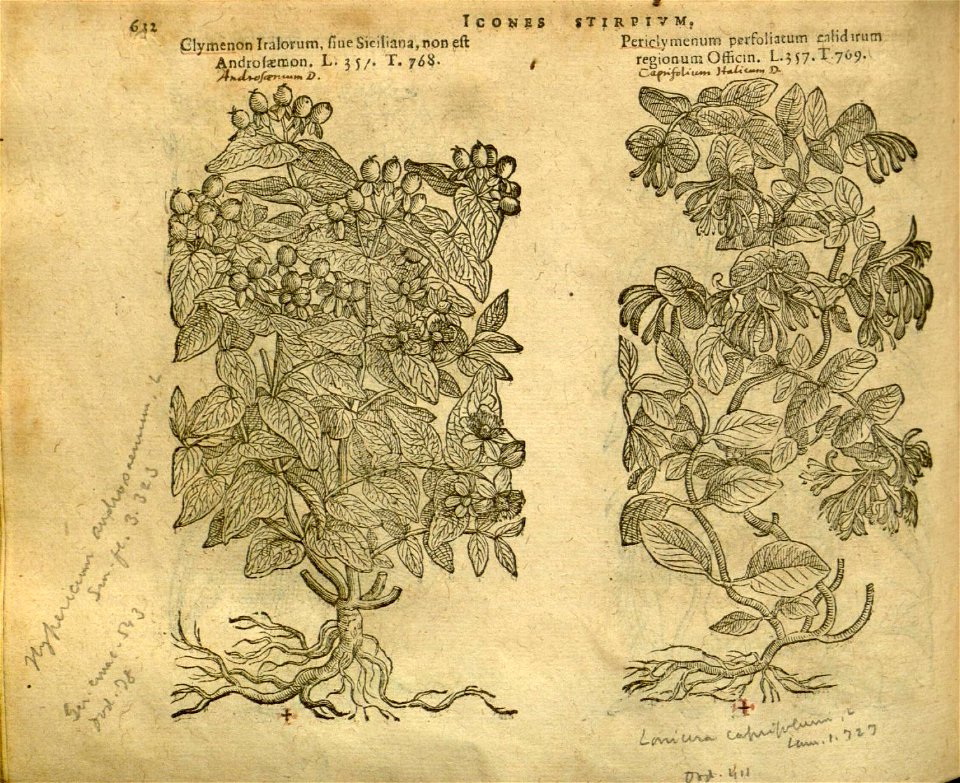 632
ICONES STIRPIVM.
Clymenon Italorum, siue Siciliana, non est
Androsæmon. L. 357. T. 768.
Androsæmum D.
Periclymenum perfoliatum calidirum
regionum Officin. L.357. T.769.
Caprifolium Italicum D.
Hypericum androsaemum, L
fl. 3. 323
emac. 543
Dod. 78
Lonicera caprifolium, L
Lam. 1. 323
Dod. 411